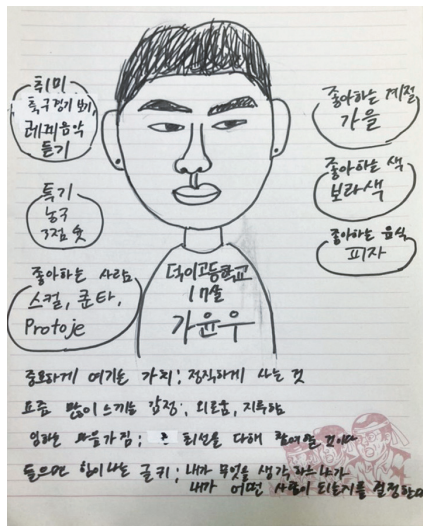 취미
축구경기 보기,
레게음악
듣기
특기
농구
3점 슛
좋아하는 사람
스컬, 쿤타,
Protoje
좋아하는 계절
가을
좋아하는 색
보라색
좋아하는 음식
피자
덕이고등학교
17살
가윤우
중요하게 여기는 가치; 정직하게 사는 것
요즘 많이 느끼는 감정; 외로움, 지루함
임하는 마음가짐; 최선을 다해 참여할 것이다
들으면 힘이나는 글귀; 내가 무엇을 생각하느냐가
내가 어떤 사람이 되는지를 결정한다